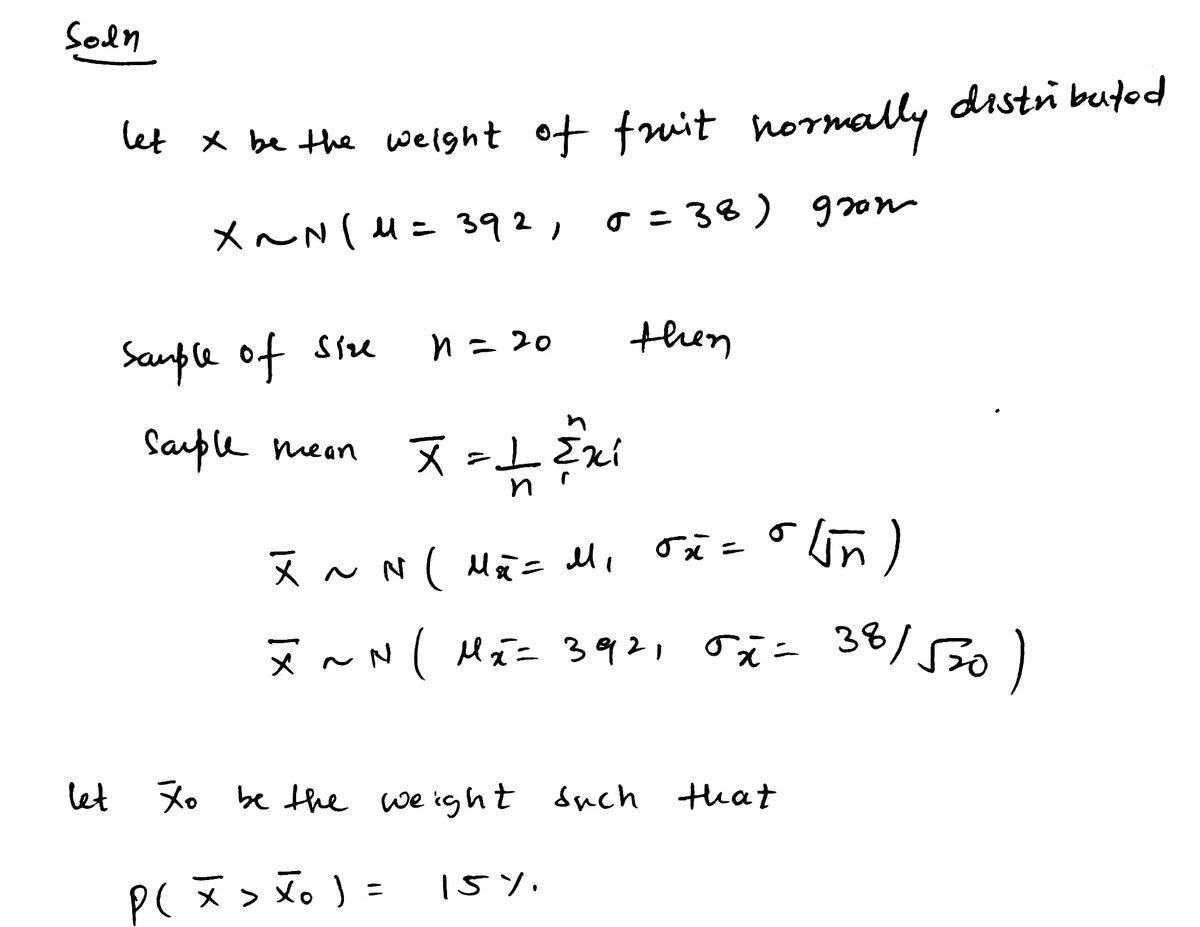 Soln
let x be the weight of fruit normally distributed
X ~ N ( μ = 392 , σ = 38 ) gram
Sample of size n = 20 then
Sample mean X̄ = 1/n Σ₁ⁿ xi
X̄ ~ N ( μx̄ = μ, σx̄ = σ/√n )
X̄ ~ N ( μx̄ = 392, σx̄ = 38/√20 )
let X̄₀ be the weight such that
P( X̄ > X̄₀ ) = 15 %.